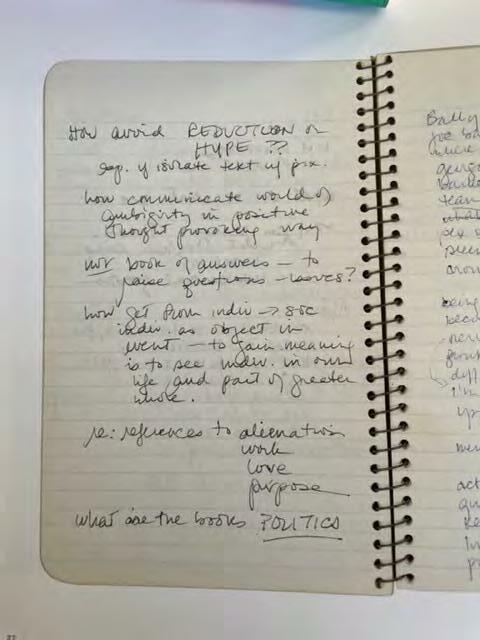 How avoid REDUCTION or
HYPE ??
esp. if isolate text w/ pix.
how communicate world of
ambigirty in positive
thought provoking way
not book of answers — to
raise questions — issues?
how get from indiv → soc
indiv. as object in
event — to gain meaning
is to see indiv. in own
life and part of greater
whole.
re: references to alienation
work
love
purpose
what are the books POLITICS
Bally
being